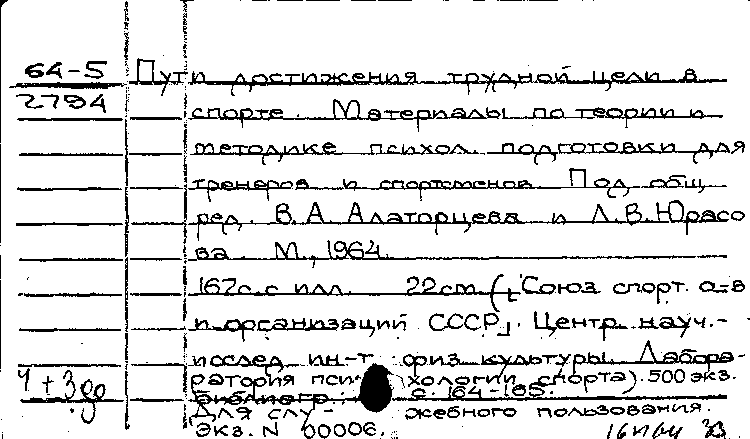 64-5
2794
Пути достижения трудной цели в
спорте. Материалы по теории и
методике психол. подготовки для
тренеров и спортсменов. Под общ.
ред. В. А. Алаторцева и Л. В. Юрасо
ва. М., 1964.
167с. с илл. 22см. ([Союз спорт. о-в
и организаций СССР]. Центр. науч.-
исслед. ин-т физ. культуры. Лабора-
ратория пси- хологии спорта). 500 экз.
Библиогр.: с. 164-165.
Для слу- жебного пользования.
Экз. N 00006.